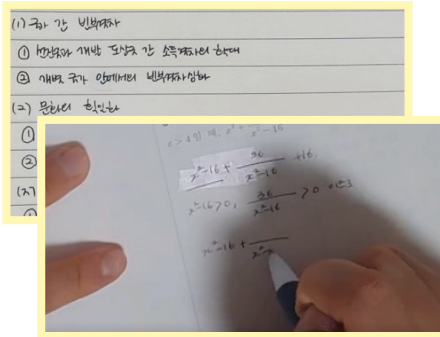 (1) 국가 간 빈부격차
① 선진국과 개발 도상국 간 소득격차의 확대
② 개별 국가 안에서의 빈부격차심화
(2) 문화의 획일화
①
②
x²-16 + 36/(x²-16) +16
x²-16>0, 36/(x²-16) >0
x²-16 +